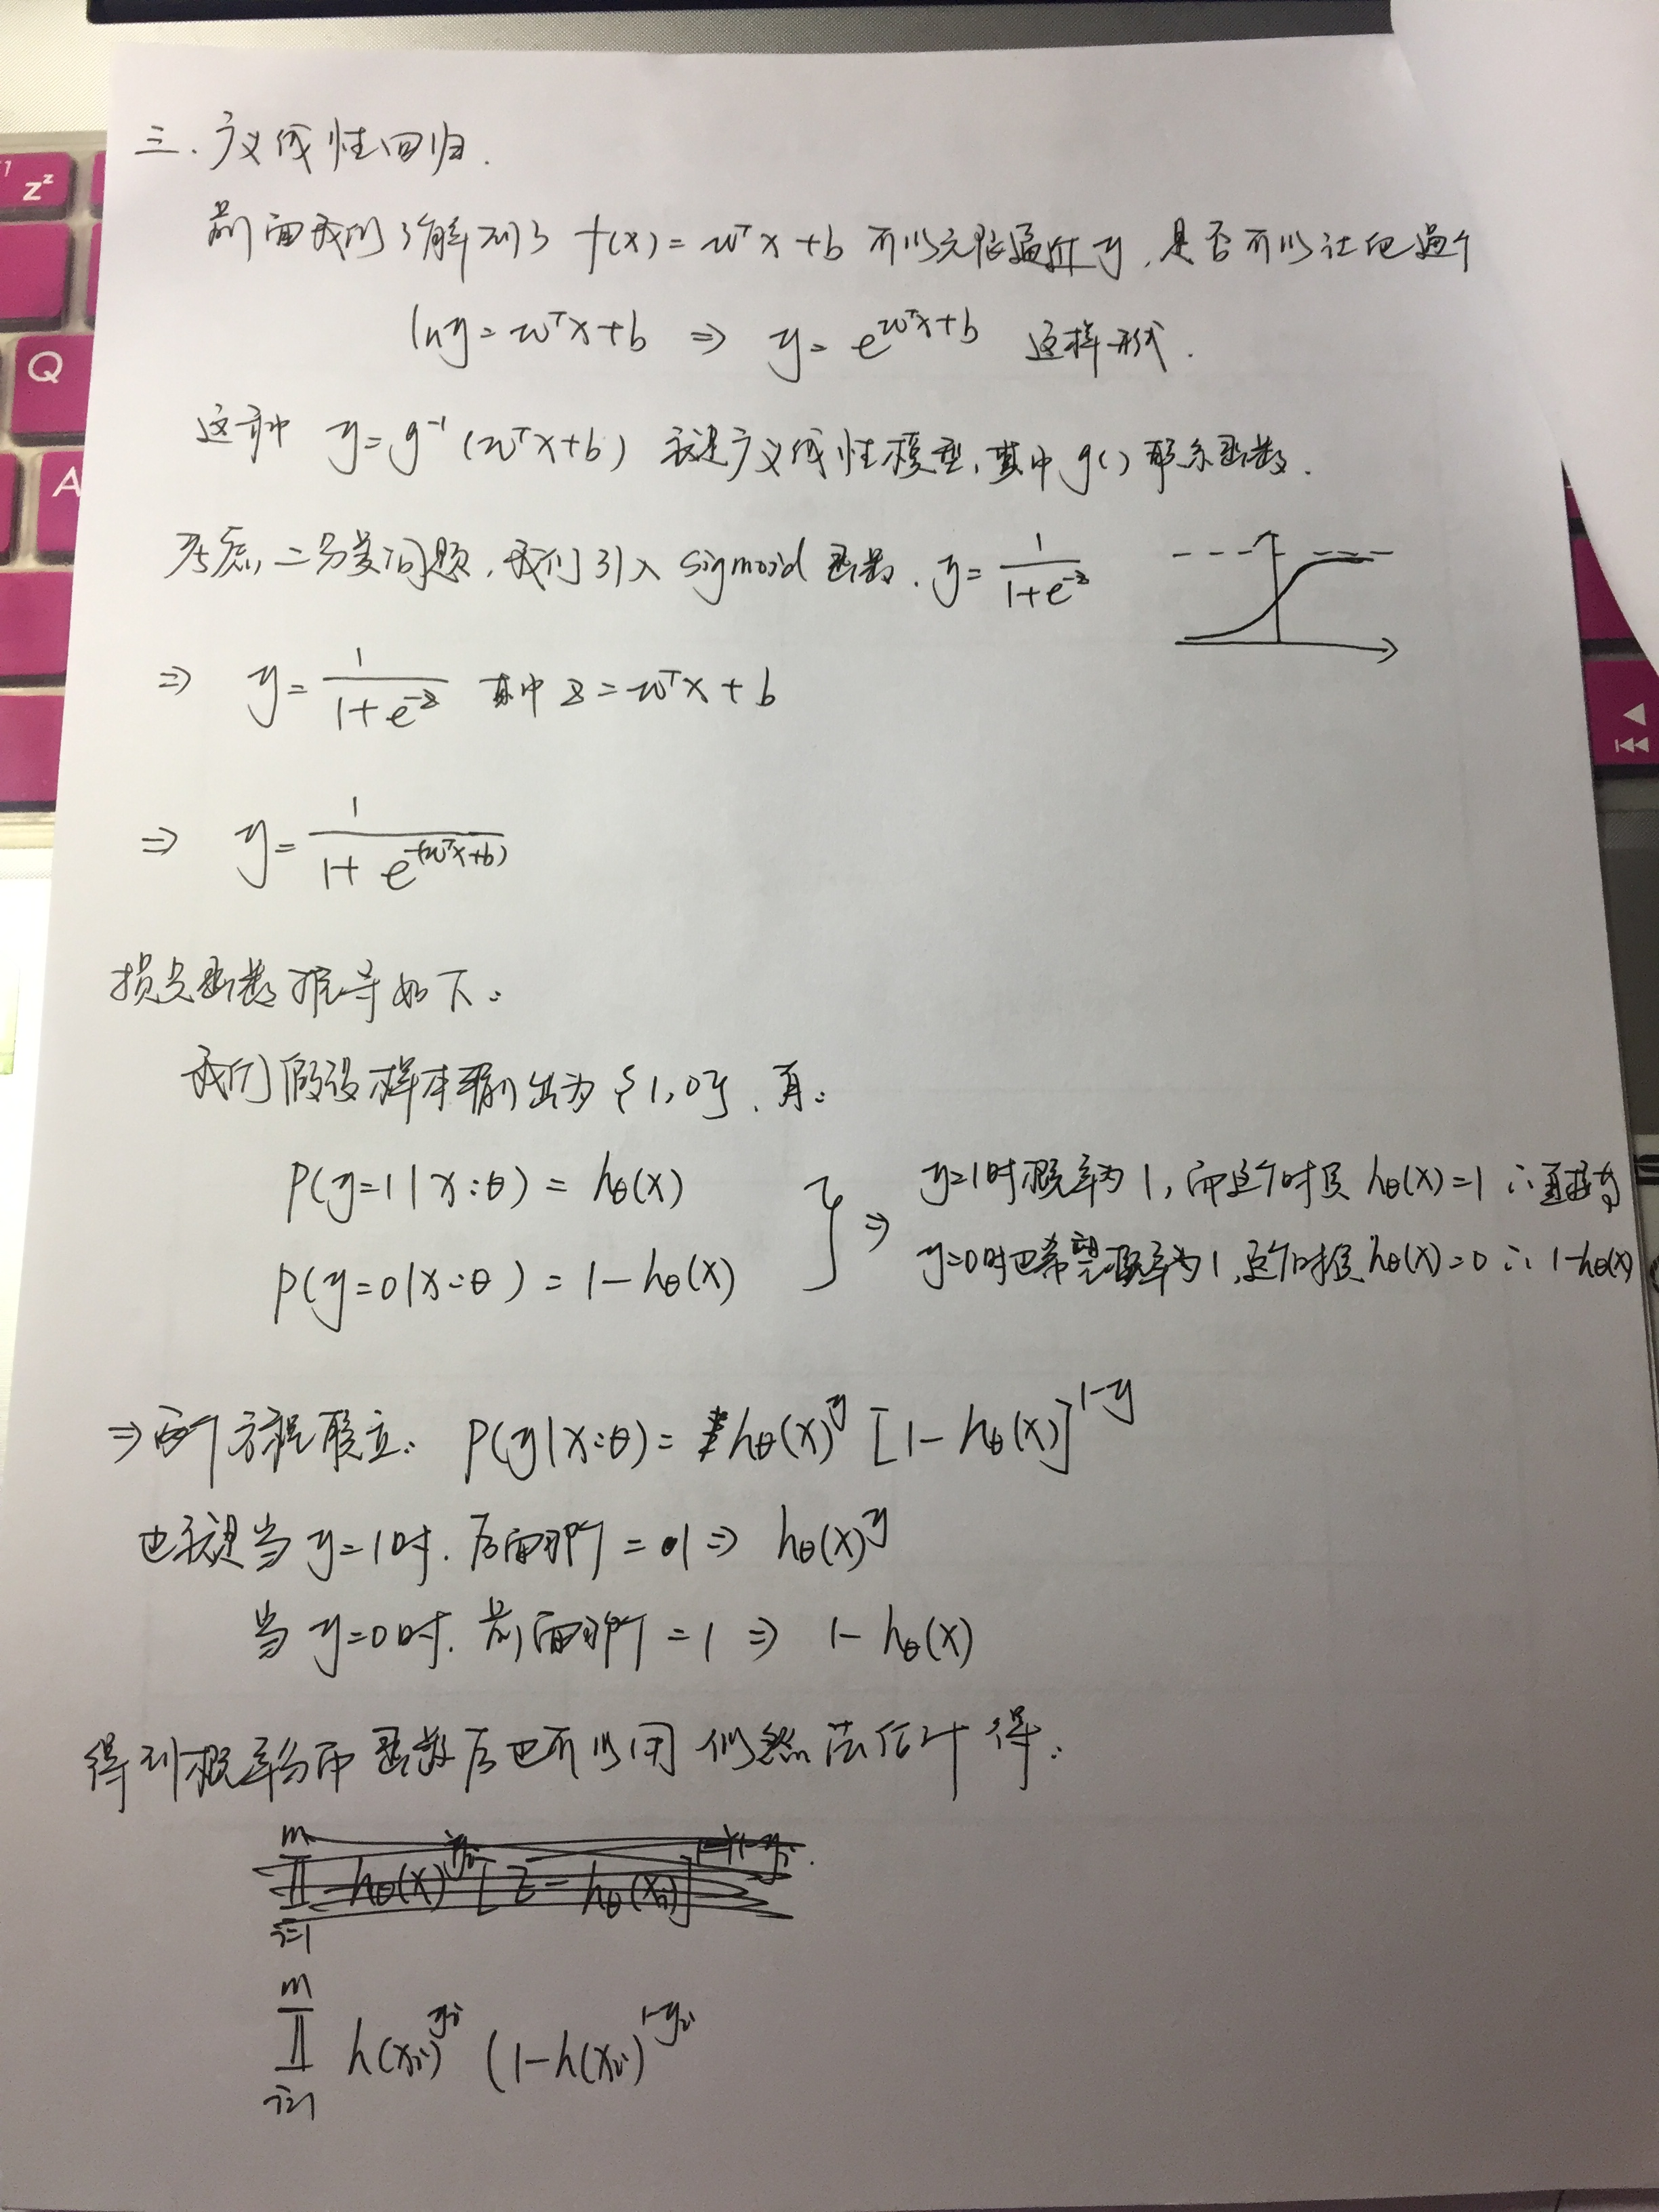 三. 广义线性回归.
前面我们了解到了 f(x) = wᵀx + b 可以无限逼近 y, 是否可以让他逼个
lny = wᵀx + b ⇒ y = e^(wᵀx+b) 这样形式.
这种 y = g⁻¹(wᵀx + b) 就是广义线性模型, 其中 g() 联系函数.
考虑二分类问题, 我们引入 sigmoid 函数. y = 1/(1+e^(-z))
⇒ y = 1/(1+e^(-z)) 其中 z = wᵀx + b
⇒ y = 1/(1+e^(-(wᵀx+b)))
损失函数推导如下:
我们假设样本输出为 {1,0}, 有:
P(y=1|x:θ) = hθ(x)
P(y=0|x:θ) = 1-hθ(x)
} ⇒ y=1时概率为1, 而这个时候 hθ(x)=1 ∴ 直接为
y=0时也希望概率为1, 这个时候 hθ(x)=0 ∴ 1-hθ(x)
⇒ 两个方程联立: P(y|x:θ) = hθ(x)^y [1-hθ(x)]^(1-y)
也就是当 y=1时. 后面那个 = 1 ⇒ hθ(x)^y
当 y=0时. 前面那个 = 1 ⇒ 1-hθ(x)
得到概率分布函数后也可以用似然法估计得:
∏_(i=1)^m h(xi)^(yi) (1-h(xi)^(1-yi)
Q
A
Z